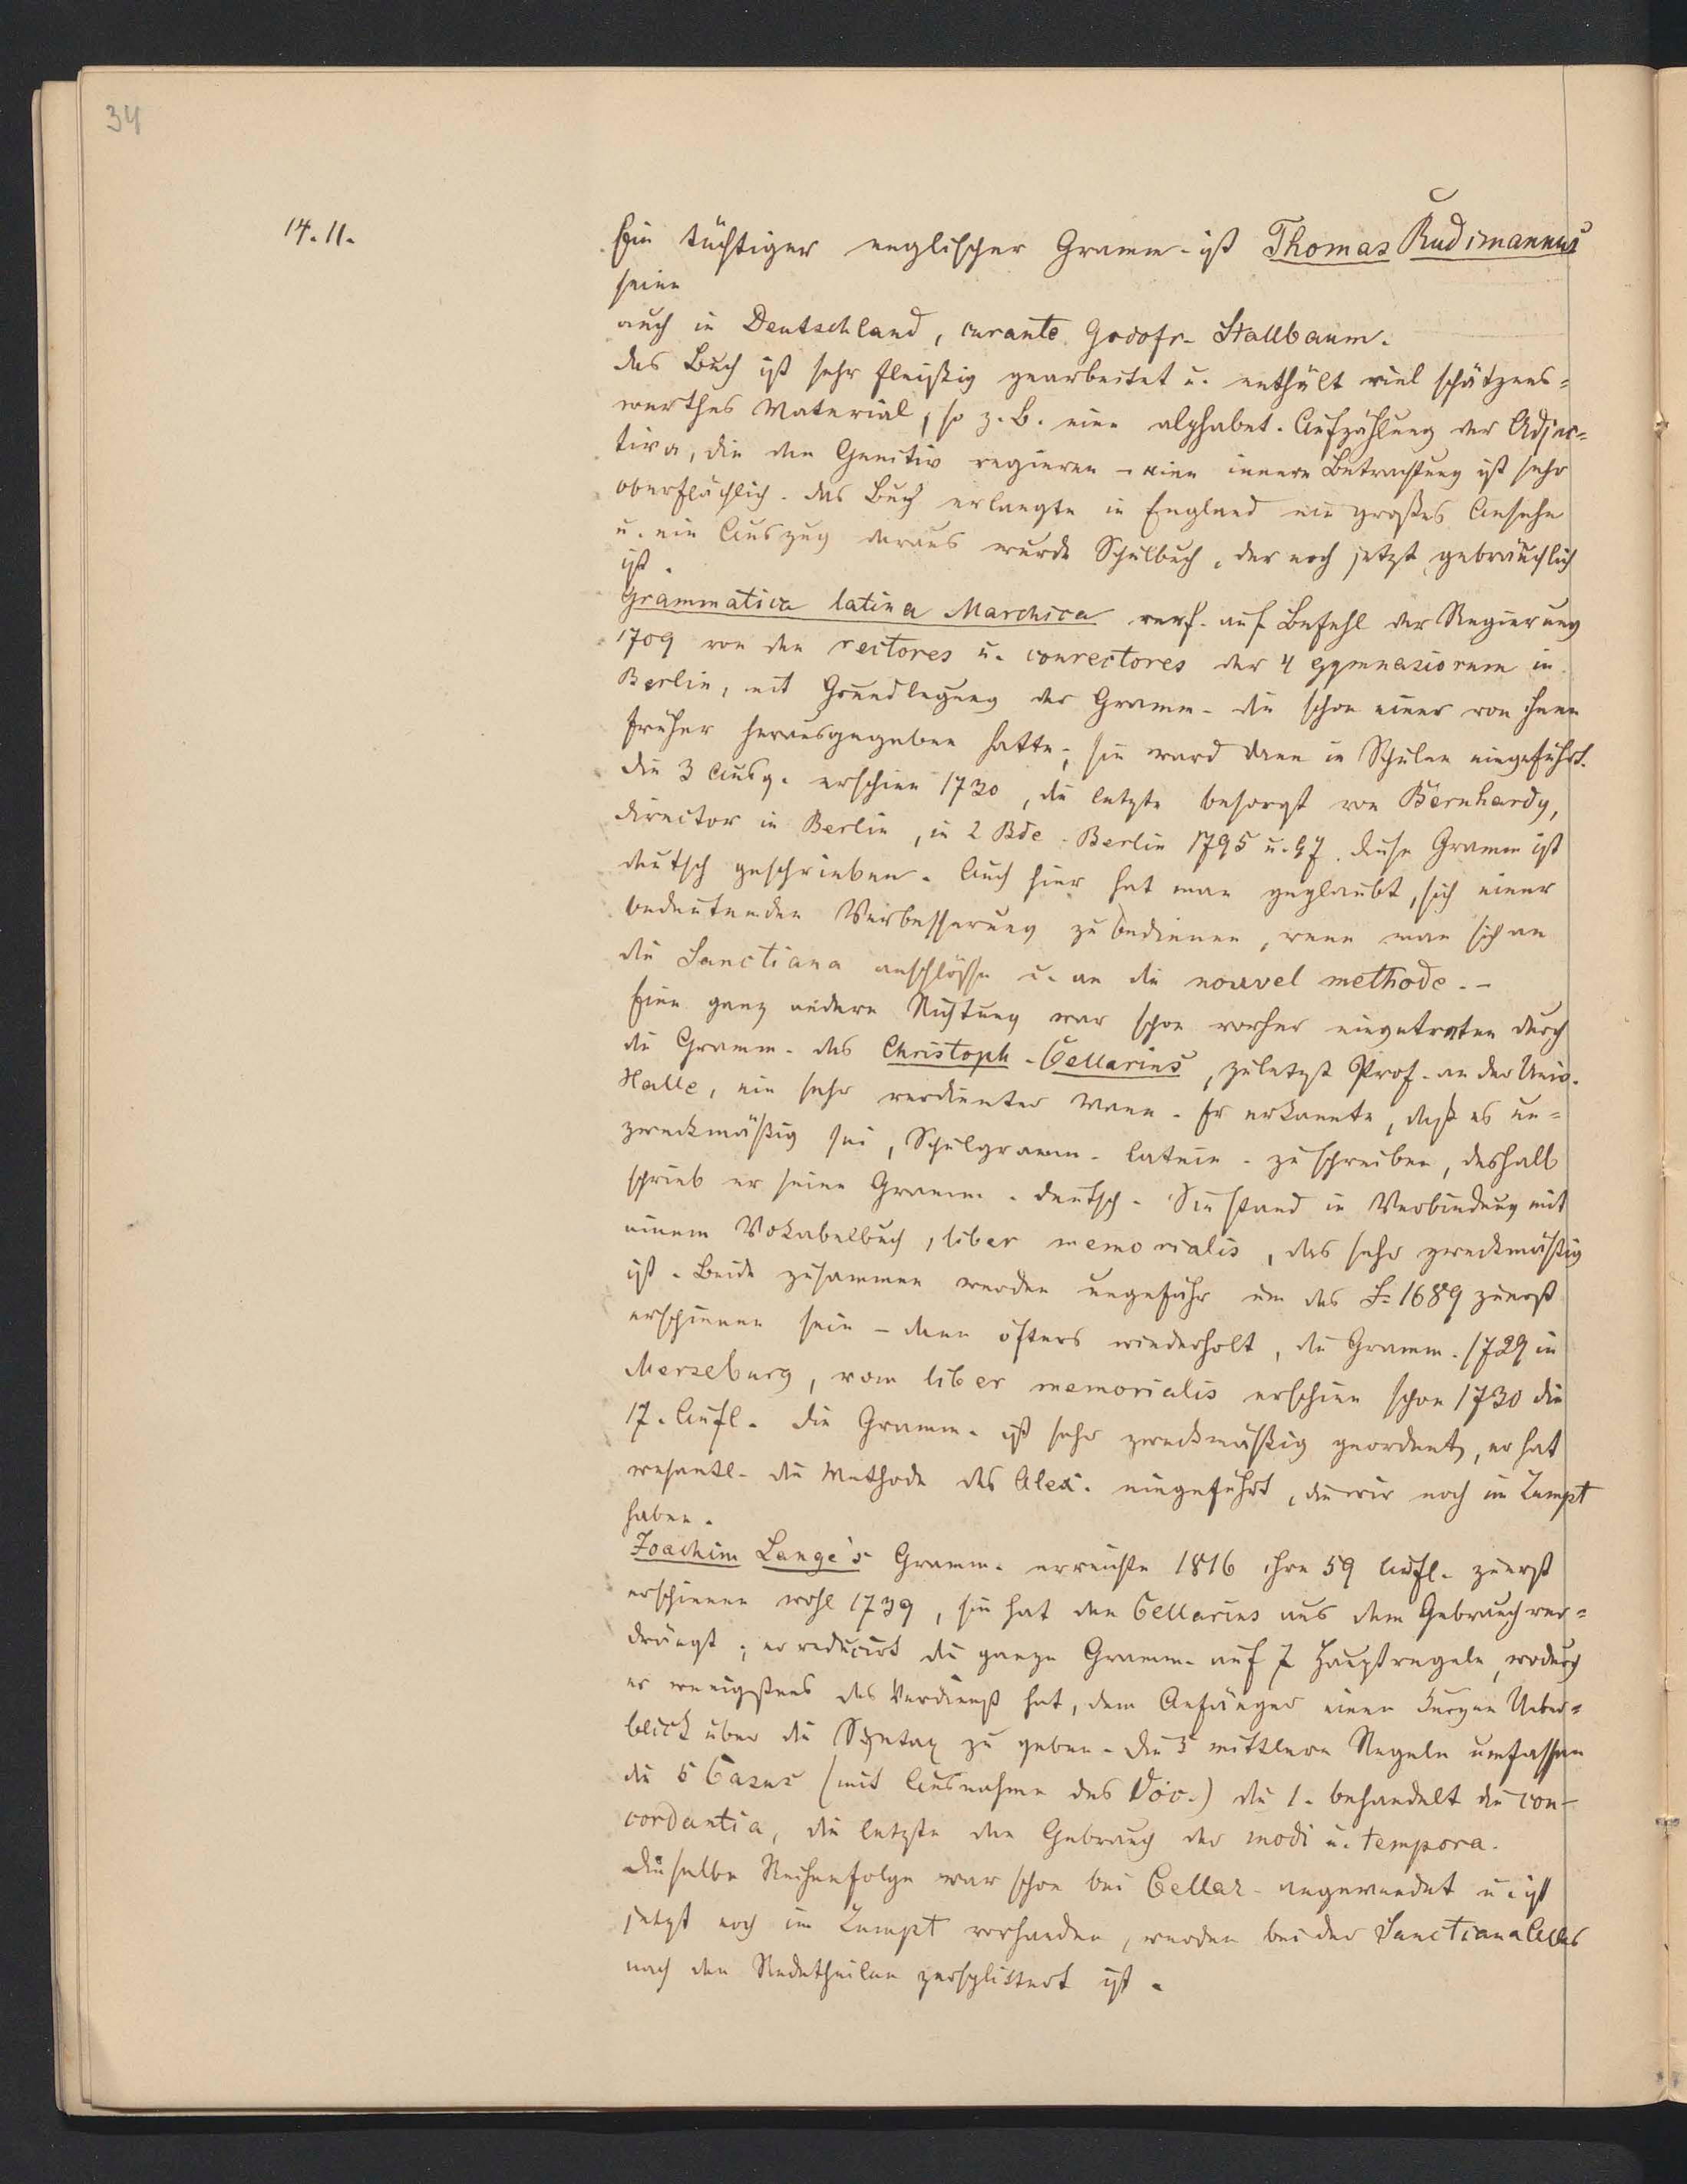 34
14.11.
Ein tüchtiger englischer Gramm. ist Thomas Rudimannus
seine
auch in Deutschland, curante Godofr. Stallbaum.
das Buch ist sehr fleißig gearbeitet u. enthält viel schätzens=
werthes Material, so z. B. eine alphabet. Aufzählung der Adjec=
tiva, die den Genitiv regieren – eine innere Betrachtung ist sehr
oberflächlich. das Buch erlangte in England ein großes Ansehn
u. ein Auszug daraus wurde Schulbuch, der noch jetzt gebräuchlich
ist.
Grammatica latina Marchica verf. auf Befehl der Regierung
1709 von den rectores u. conrectores der 4 gymnasiorum in
Berlin, mit Grundlegung der Gramm. die schon einer von ihnen
früher herausgegeben hatte; sie ward dann in Schulen eingeführt.
die 3 Ausg. erschien 1730, die letzte besorgt von Bernhardy,
director in Berlin, in 2 Bde. Berlin 1795 u. 97. diese Gramm ist
deutsch geschrieben. Auch hier hat man geglaubt, sich einer
bedeutenden Verbesserung zu bedienen, wenn man sich an
die Sanctiana anschlösse u. an die nouvel methode. –
Eine ganz andere Richtung war schon vorher eingetreten durch
die Gramm. des Christoph. Cellarius, zuletzt Prof. an der Univ.
Halle, ein sehr verdienter Mann. Er erkannte, daß es un=
zweckmäßig sei, Schulgramm. latein. zu schreiben, deshalb
schrieb er seine Gramm. deutsch. Sie stand in Verbindung mit
einem Vokabelbuch, liber memorialis, das sehr zweckmäßig
ist. Beide zusammen werden ungefähr um das J. 1689 zuerst
erschienen sein – dann öfters wiederholt, die Gramm. 1729 in
Merseburg, vom liber memorialis erschien schon 1730 die
17. Aufl. die Gramm. ist sehr zweckmäßig geordnet, er hat
wesentl. die Methode des Alex. eingeführt, die wir noch im Zumpt
haben.
Joachim Lange's Gramm. erreichte 1816 ihre 59 Aufl. zuerst
erschienen wohl 1739, sie hat den Cellarius aus dem Gebrauch ver=
drängt; er reducirt die ganze Gramm. auf 7 Hauptregeln, wodurch
er wenigstens das Verdienst hat, dem Anfänger einen kurzen Ueber=
blick über die Syntax zu geben. die 5 mittlern Regeln umfassen
die 5 Casus (mit Ausnahme des Voc.) die 1. behandelt die con-
cordantia, die letzte den Gebrauch der modi u. tempora.
dieselbe Reihenfolge war schon bei Cellar. angewendet u. ist
jetzt noch im Zumpt vorhanden, während bei der Sanctiana Alles
nach den Redetheilen zersplittert ist.